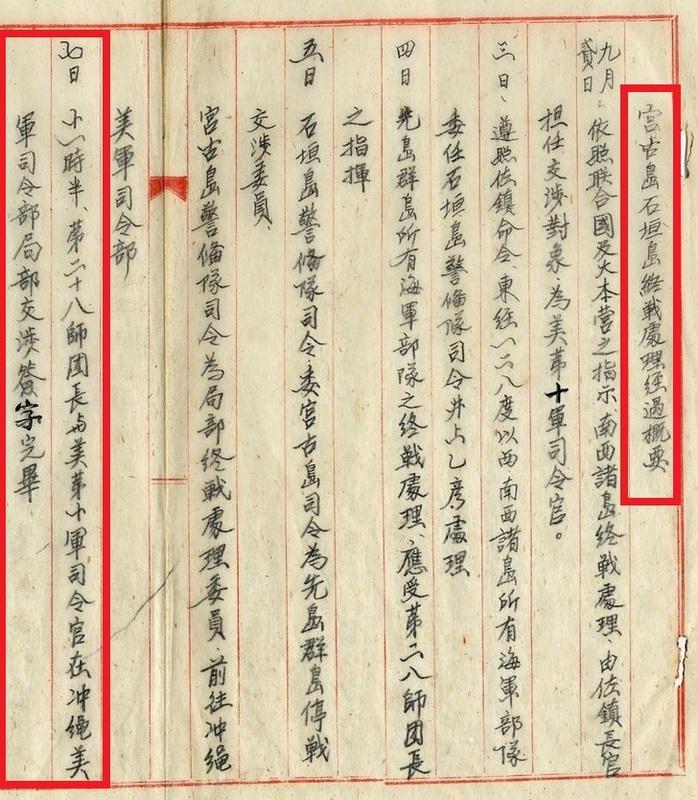 宮古島石垣島終戦處理經過概要
九月貳日、依照联合國及大本营之指示、南西諸島终戦處理、由佐鎮長官
担任交渉對象為美第十軍司令官。
三日、遵照佐鎮命令、東經一二八度以西南西諸島所有海軍部隊
委任石垣島警備隊司令井上乙彦處理
四日 先島群島所有海軍部隊之终戦處理、應受第二八師团長
之指揮
五日 石垣島警備隊司令、委宮古島司令為先島群島停戦
交渉委員、
宮古島警備隊司令為局部终戦處理委員、前往冲绳
美軍司令部
七日 十一時半、第二十八師团長与美第十軍司令官在冲绳美
軍司令部局部交渉簽字完畢